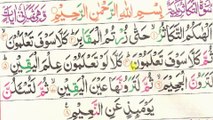 بِسْمِ اللّٰهِ الرَّحْمٰنِ الرَّحِيْمِ
اَلْهٰىكُمُ التَّكَاثُرُ حَتّٰى زُرْتُمُ الْمَقَابِرَ كَلَّا سَوْفَ تَعْلَمُوْنَ
ثُمَّ كَلَّا سَوْفَ تَعْلَمُوْنَ كَلَّا لَوْ تَعْلَمُوْنَ عِلْمَ الْيَقِيْنِ
لَتَرَوُنَّ الْجَحِيْمَ ثُمَّ لَتَرَوُنَّهَا عَيْنَ الْيَقِيْنِ ثُمَّ لَتُسْـَٔلُنَّ
يَوْمَئِذٍ عَنِ النَّعِيْمِ